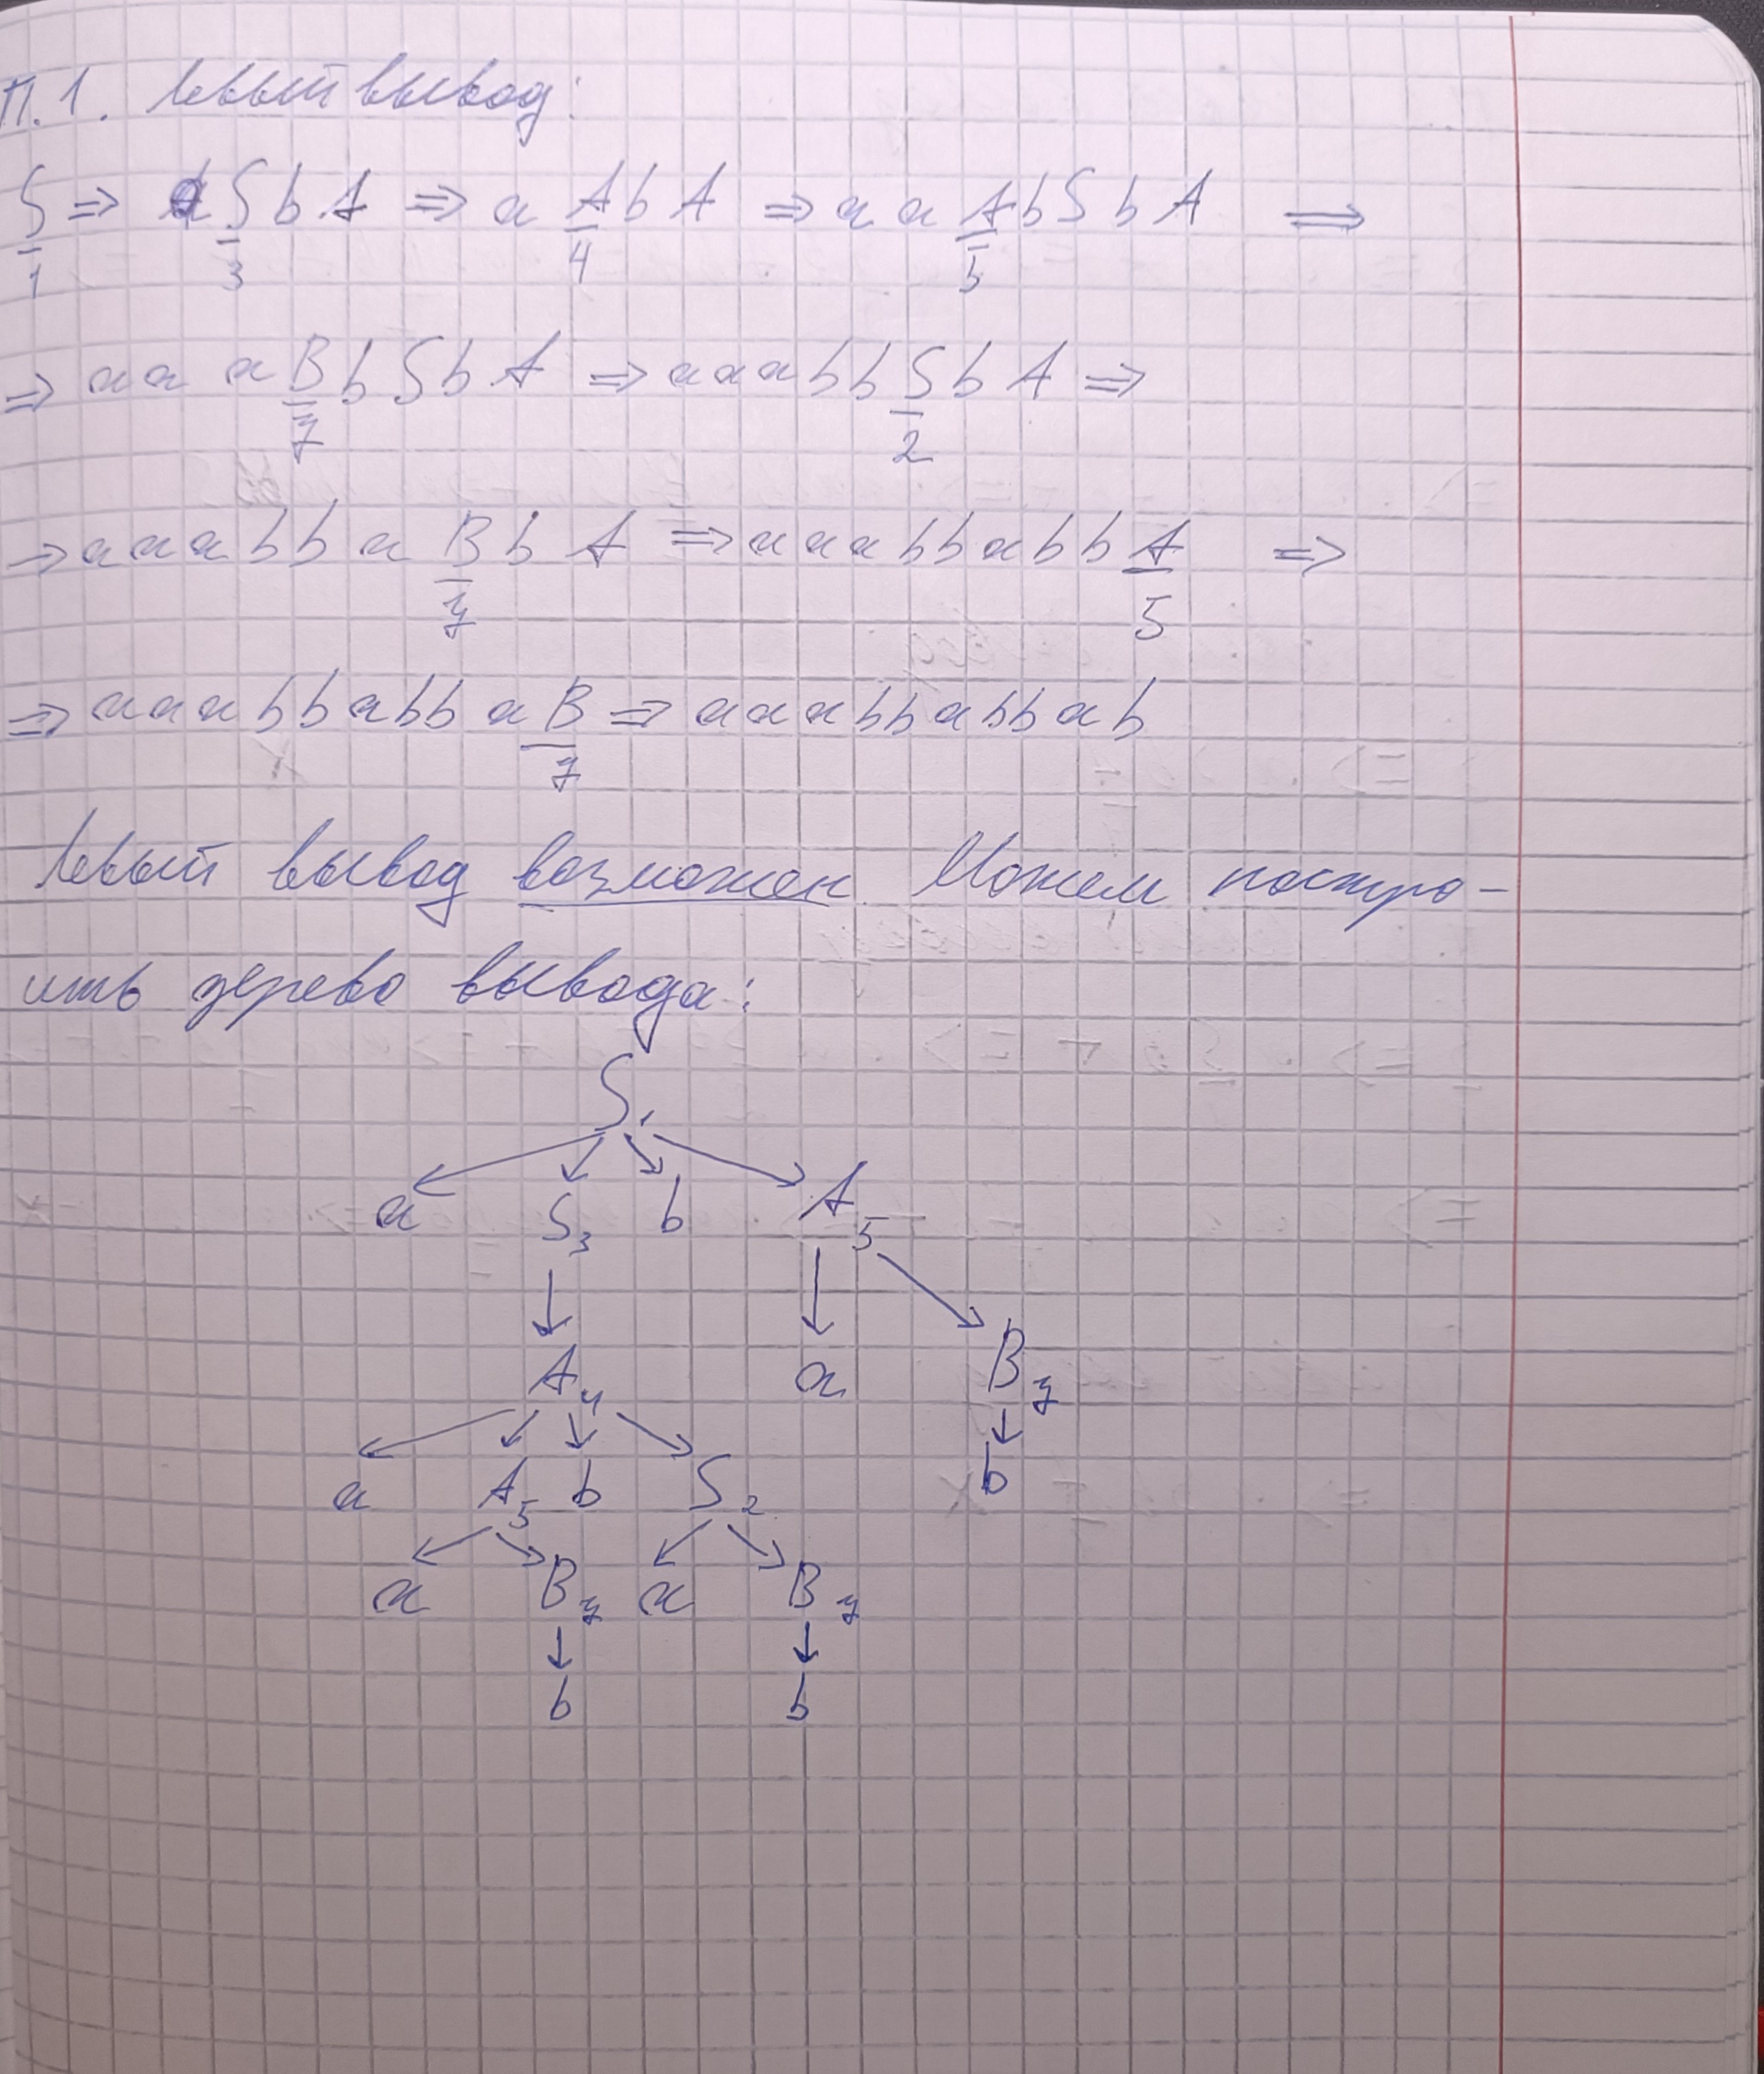 П.1. Левый вывод:
S ⇒ aSbA ⇒ aAbA ⇒ aaAbSbA ⇒
1 3 4 5
⇒ aaaBbSbA ⇒ aaabbSbA ⇒
7 2
⇒ aaabbaBbA ⇒ aaabbabbA ⇒
7 5
⇒ aaabbabbaB ⇒ aaabbabbab
7
Левый вывод возможен. Можем постро-
ить дерево вывода:
S1
a S3 b A5
A4 a B7
a A5 b S2 b
a B7 a B7
b b